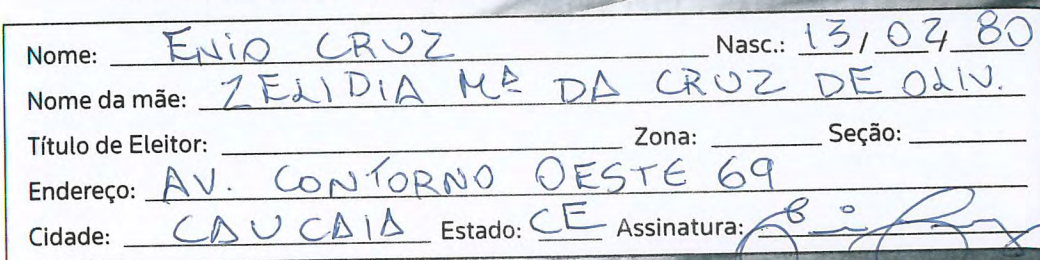 Nome: ENIO CRUZ Nasc.: 13/02/80
Nome da mãe: ZELIDIA Mª DA CRUZ DE OLIV.
Título de Eleitor: Zona: Seção:
Endereço: AV. CONTORNO OESTE 69
Cidade: CAUCAIA Estado: CE Assinatura: